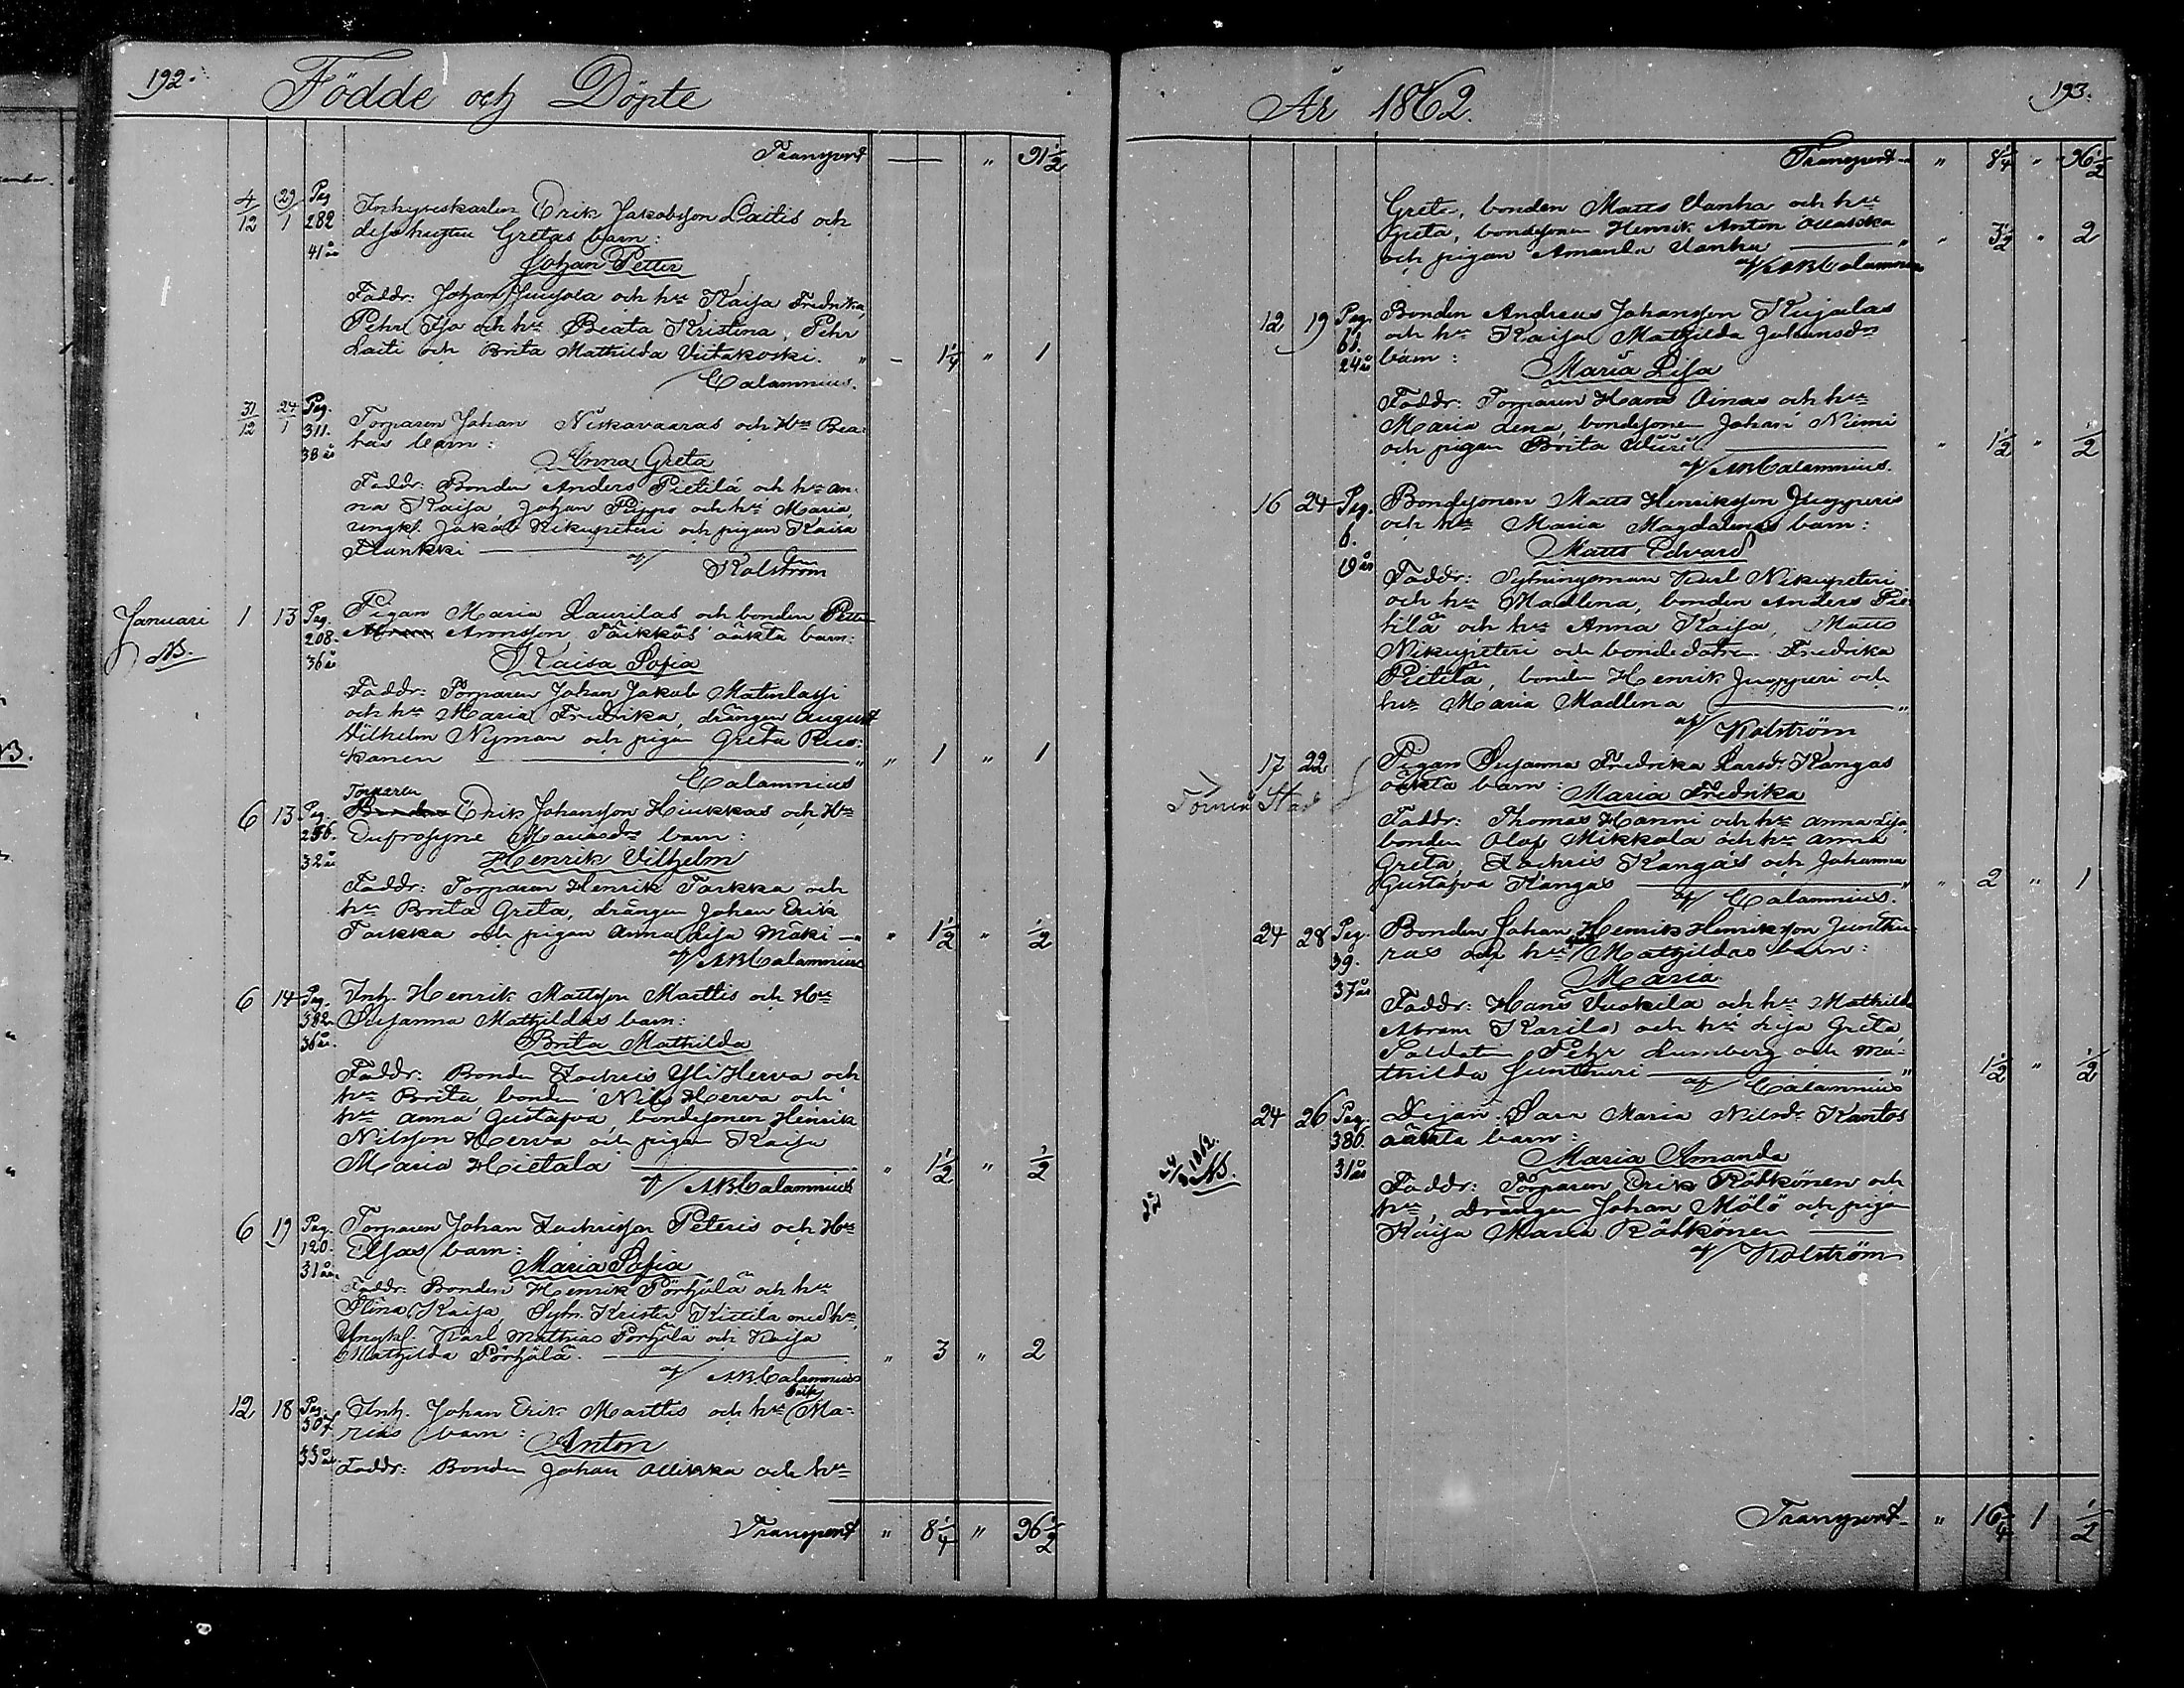 192.
Födde och Döpte
Transport — " 91 1/2
4/12 29/1 Pag 282 41 år
Inhyseskarlen Erik Jakobsson Laitis och
dess hustru Gretas barn:
Johan Petter
Faddr: Johan Junsola och hru Kaisa Fredrika,
Pehr Iso och hru Beata Kristina, Pehr
Laiti och Brita Mathilda Viitakoski. " - 1 1/4 " 1
Calamnius.
31/12 24/1 Pag. 311. 38 år
Torparen Johan Niskavaaras och Hru Bea-
tas barn:
Anna Greta
Faddr: Bonden Anders Pietilä och hru An-
na Kaisa, Johan Piippo och hru Maria,
ungkl. Jakob Nikupeteri och pigan Kaisa
Plankki
af/ Kolström
Januari 1 13 Pag. 208. 36 år
NB.
Pigan Maria Laurilas och bonden Petter
Abram Aronsson Täikkös oäkta barn:
Kaisa Sofia
Faddr: Torparen Johan Jakob Matinlassi
och hru Maria Fredrika, drängen August
Vilhelm Nyman och pigan Greta Ruo-
kanen " " 1 " 1
Calamnius
6 13 Pag. 256. 32 år
Torparen
Bonden Erik Johansson Hiukkas och Hru
Eufrosyne Mariasdrs barn:
Henrik Vilhelm
Faddr: Torparen Henrik Tarkka och
hru Brita Greta, drängen Johan Erik
Tarkka och pigan Anna Lisa Mäki " 1 1/2 " 1/2
af/ NB Calamnius
6 14 Pag. 382. 36 år.
Inh. Henrik Mattsson Marttis och Hru
Susanna Mathildas barn:
Brita Mathilda
Faddr: Bonden Zachris Yli Herva och
hru Brita bonden Nils Herva och
hru Anna Gustafva bondesonen Henrik
Nilsson Herva och pigan Kaisa
Maria Hietala " 1 1/2 " 1/2
af/ NB Calamnius
6 19 Pag. 120. 31 år
Torparen Johan Zachrisson Peteris och Hru
Elsas barn:
Maria Sofia
Faddr: Bonden Henrik Pörhölä och hru
Stina Kaisa, Sytn. Krister Kittilä med hru,
Ungkl. Karl Matthias Pörhölä och Kaisa
Mathilda Pörhölä. " 3 " 2
af/ NB Calamnius
12 18 Pag. 307. 33 år.
Inh. Johan Erik Marttis och hru Ma-
rias barn:
Anton
Faddr: Bonden Johan Ollikka och hru
Transport " 8 1/4 " 96 1/2
År 1862.
193.
Transport " 8 1/4 " 96 1/2
Greta, bonden Matts Vanha och hru
Greta, bondesonen Henrik Anton
och pigan Amanda Vanha " " 3 1/2 " 2
af/ NB Calamnius
12 19 Pag. 61. 24 år
Bonden Andreas Johansson Kujalas
och hru Kaisa Mathilda Johansdrs
barn:
Maria Lisa
Faddr: Torparen Hans Ainas och hru
Maria Lena, bondesonen Johan Niemi
och pigan Brita " 1 1/2 " 1/2
af/ NB Calamnius.
16 24 Pag. 6. 19 år
Bondesonen Matts Henriksson Juopperis
och hru Maria Magdalenas barn:
Matts Edvard
Faddr: Sytningsman Karl Nikupeteri
och hru Madlena, bonden Anders Pie-
tilä och hru Anna Kaisa, Matts
Nikupeteri och bondedotren Fredrika
Pietilä, bonden Henrik Juopperi och
hru Maria Madlena "
af/ Kolström
17 22
Torneå Stad
Pigan Susanna Fredrika Larsdr Kangas
oäkta barn: Maria Fredrika
Faddr: Thomas Hanni och hru Anna Lisa,
bonden Olof Mikkola och hru Anna
Greta, Zachris Kangas och Johanna
Gustafva Kangas " " 2 " 1
af/ Calamnius.
24 28 Pag. 39. 37 år
Bonden Johan Henrik Henriksson Junthu-
ras och hru Mathildas barn:
Maria
Faddr: Hans Vuokila och hru Mathilda
Abram Karila och hru Lisa Greta,
Soldaten Pehr Lunnberg och Ma-
thilda Junthuri " 1 1/2 " 1/2
af/ Calamnius
24 26 Pag. 386. 31 år
24/3 1862. NB.
Dejan Sara Maria Nilsdr Kantos
oäkta barn:
Maria Amanda
Faddr: Torparen Erik Rötkönen och
hru, drängen Johan Mölö och pigan
Kaisa Maria Rötkönen
af/ Kolström
Transport " 16 1/4 1 1/2